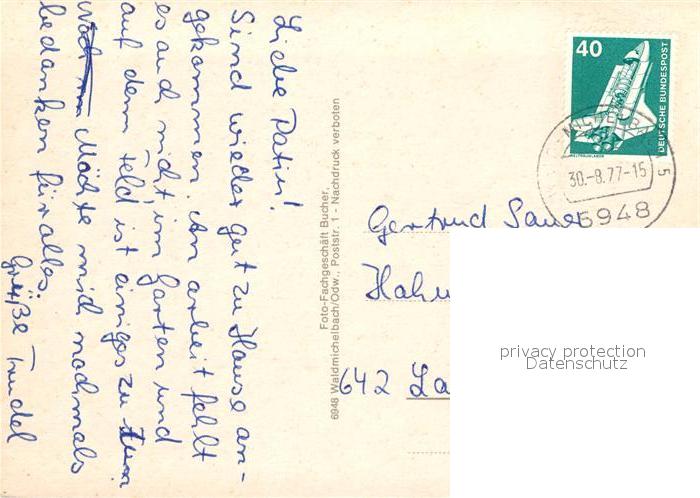 Liebe Patin!
Sind wieder gut zu Hause an-
gekommen. An arbeit fehlt
es auch nicht, im Garten und
auf dem Feld ist einiges zu tun
Möchte mich nochmals
bedanken für alles.
Grüße Trudel
Foto-Fachgeschäft Bucher,
6948 Waldmichelbach/Odw., Poststr. 1 - Nachdruck verboten
40
DEUTSCHE BUNDESPOST
30.-8.77-15
6948
Gertrud Sauer
Hahn
642 La
privacy protection
Datenschutz